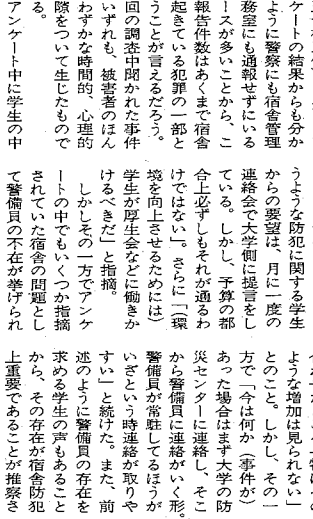 ケートの結果からも分か
るように警察にも宿舎管理
務室にも通報せずにいる
ースが多いことから、こ
報告件数はあくまで宿舎
起きている犯罪の一部と
うことが言えるだろう。
回の調査中聞かれた事件
いずれも、被害者のほん
わずかな時間的、心理的
隙をついて生じたもので
る。
アンケート中に学生の中
うような防犯に関する学生
からの要望は、月に一度の
連絡会で大学側に提言をし
ている。しかし、予算の都
合上必ずしもそれが通るわ
けではない」。さらに「（環
境を向上させるためには）
学生が厚生会などに働きか
けるべきだ」と指摘。
しかしその一方でアンケ
ートの中でもいくつか指摘
されていた宿舎の問題とし
て警備員の不在が挙げられ
ような増加は見られない」
とのこと。しかし、その一
方で「今は何か（事件が）
あった場合はまず大学の防
災センターに連絡し、そこ
から警備員に連絡がいく形。
警備員が常駐してるほうが
いざという時連絡が取りや
すい」と続けた。また、前
述のように警備員の存在を
求める学生の声もあること
から、その存在が宿舎防犯
上重要であることが推察さ